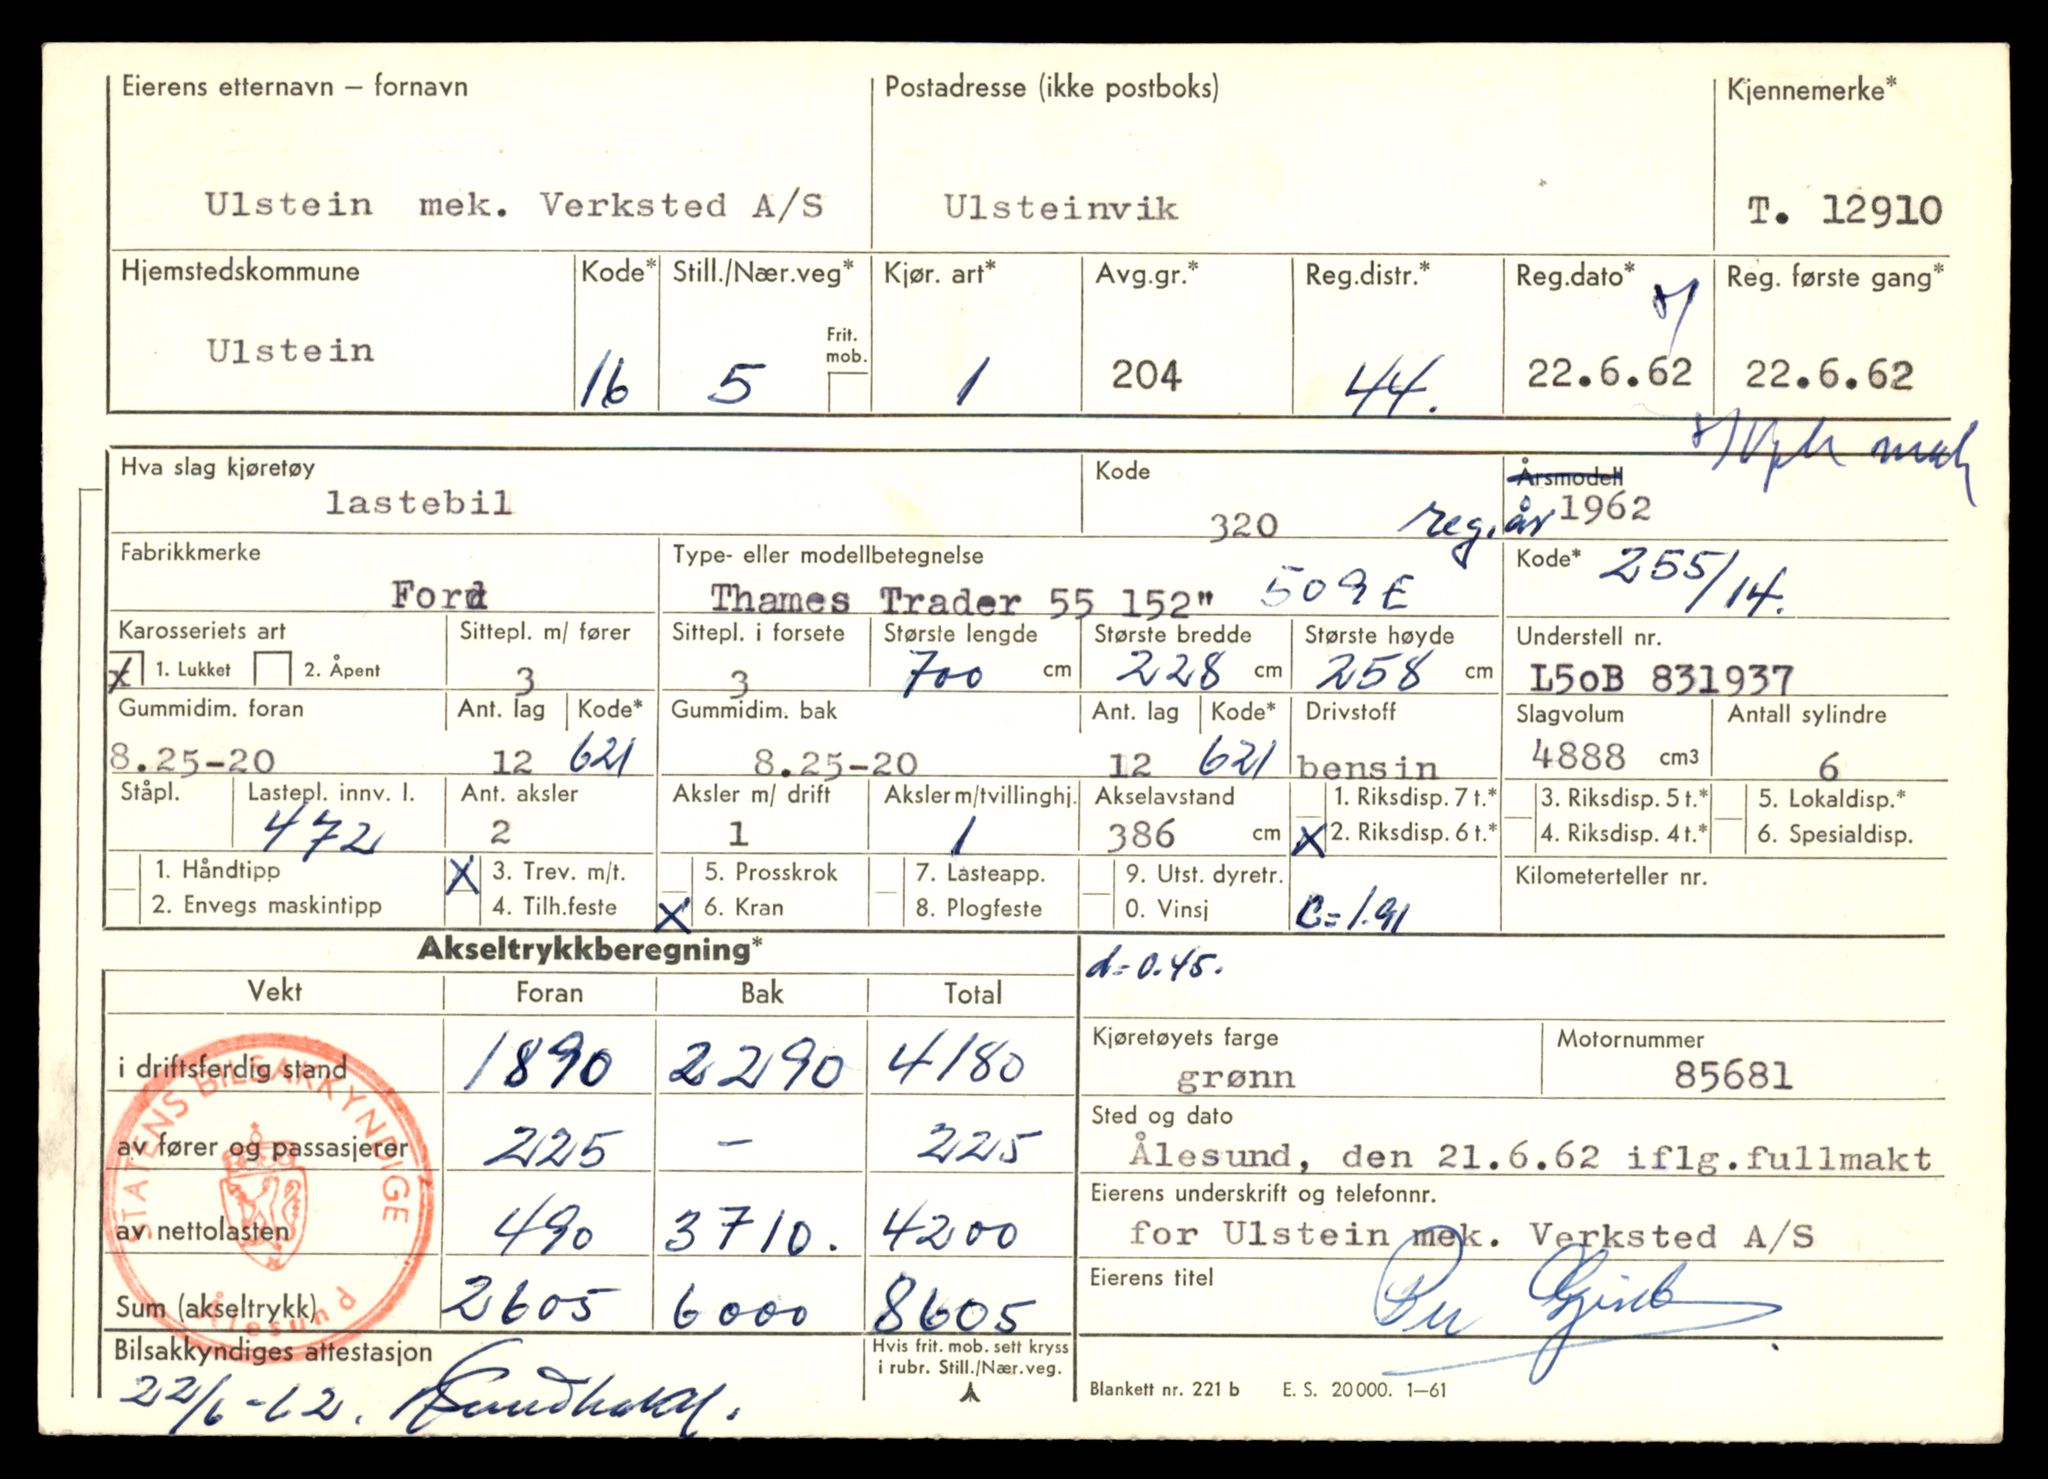 Eierens etternavn – fornavn Postadresse (ikke postboks) Kjennemerke*
Ulstein mek. Verksted A/S Ulsteinvik T. 12910
Hjemstedskommune Kode* Still./Nær.veg* Kjør. art* Avg.gr.* Reg.distr.* Reg.dato* Reg. første gang*
Frit. mob.
Ulstein 16 5 1 204 44. 22.6.62 22.6.62
Hva slag kjøretøy Kode Årsmodell
lastebil 320 reg. år 1962
Fabrikkmerke Type- eller modellbetegnelse Kode* 255/14.
Ford Thames Trader 55 152" 509 E
Karosseriets art Sittepl. m/ fører Sittepl. i forsete Største lengde Største bredde Største høyde Understell nr.
x 1. Lukket 2. Åpent 3 3 700 cm 228 cm 258 cm L5oB 831937
Gummidim. foran Ant. lag Kode* Gummidim. bak Ant. lag Kode* Drivstoff Slagvolum Antall sylindre
8.25-20 12 621 8.25-20 12 621 bensin 4888 cm3 6
Ståpl. Lastepl. innv. l. Ant. aksler Aksler m/ drift Aksler m/tvillinghj. Akselavstand 1. Riksdisp. 7 t.* 3. Riksdisp. 5 t.* 5. Lokaldisp.*
472 2 1 1 386 cm x 2. Riksdisp. 6 t.* 4. Riksdisp. 4 t.* 6. Spesialdisp.
1. Håndtipp x 3. Trev. m/t. 5. Prosskrok 7. Lasteapp. 9. Utst. dyretr. Kilometerteller nr.
2. Envegs maskintipp 4. Tilh.feste x 6. Kran 8. Plogfeste 0. Vinsj C=1.91
Akseltrykkberegning* d=0.45.
Vekt Foran Bak Total
i driftsferdig stand 1890 2290 4180
av fører og passasjerer 225 – 225
av nettolasten 490 3710. 4200
Sum (akseltrykk) 2605 6000 8605
STATENS BILSAKKYNDIGE
Ålesund
Kjøretøyets farge Motornummer
grønn 85681
Sted og dato
Ålesund, den 21.6.62 iflg.fullmakt
Eierens underskrift og telefonnr.
for Ulstein mek. Verksted A/S
Eierens titel
Bilsakkyndiges attestasjon Hvis frit. mob. sett kryss
i rubr. Still./Nær.veg.
22/6-62.
Blankett nr. 221 b E. S. 20000. 1–61